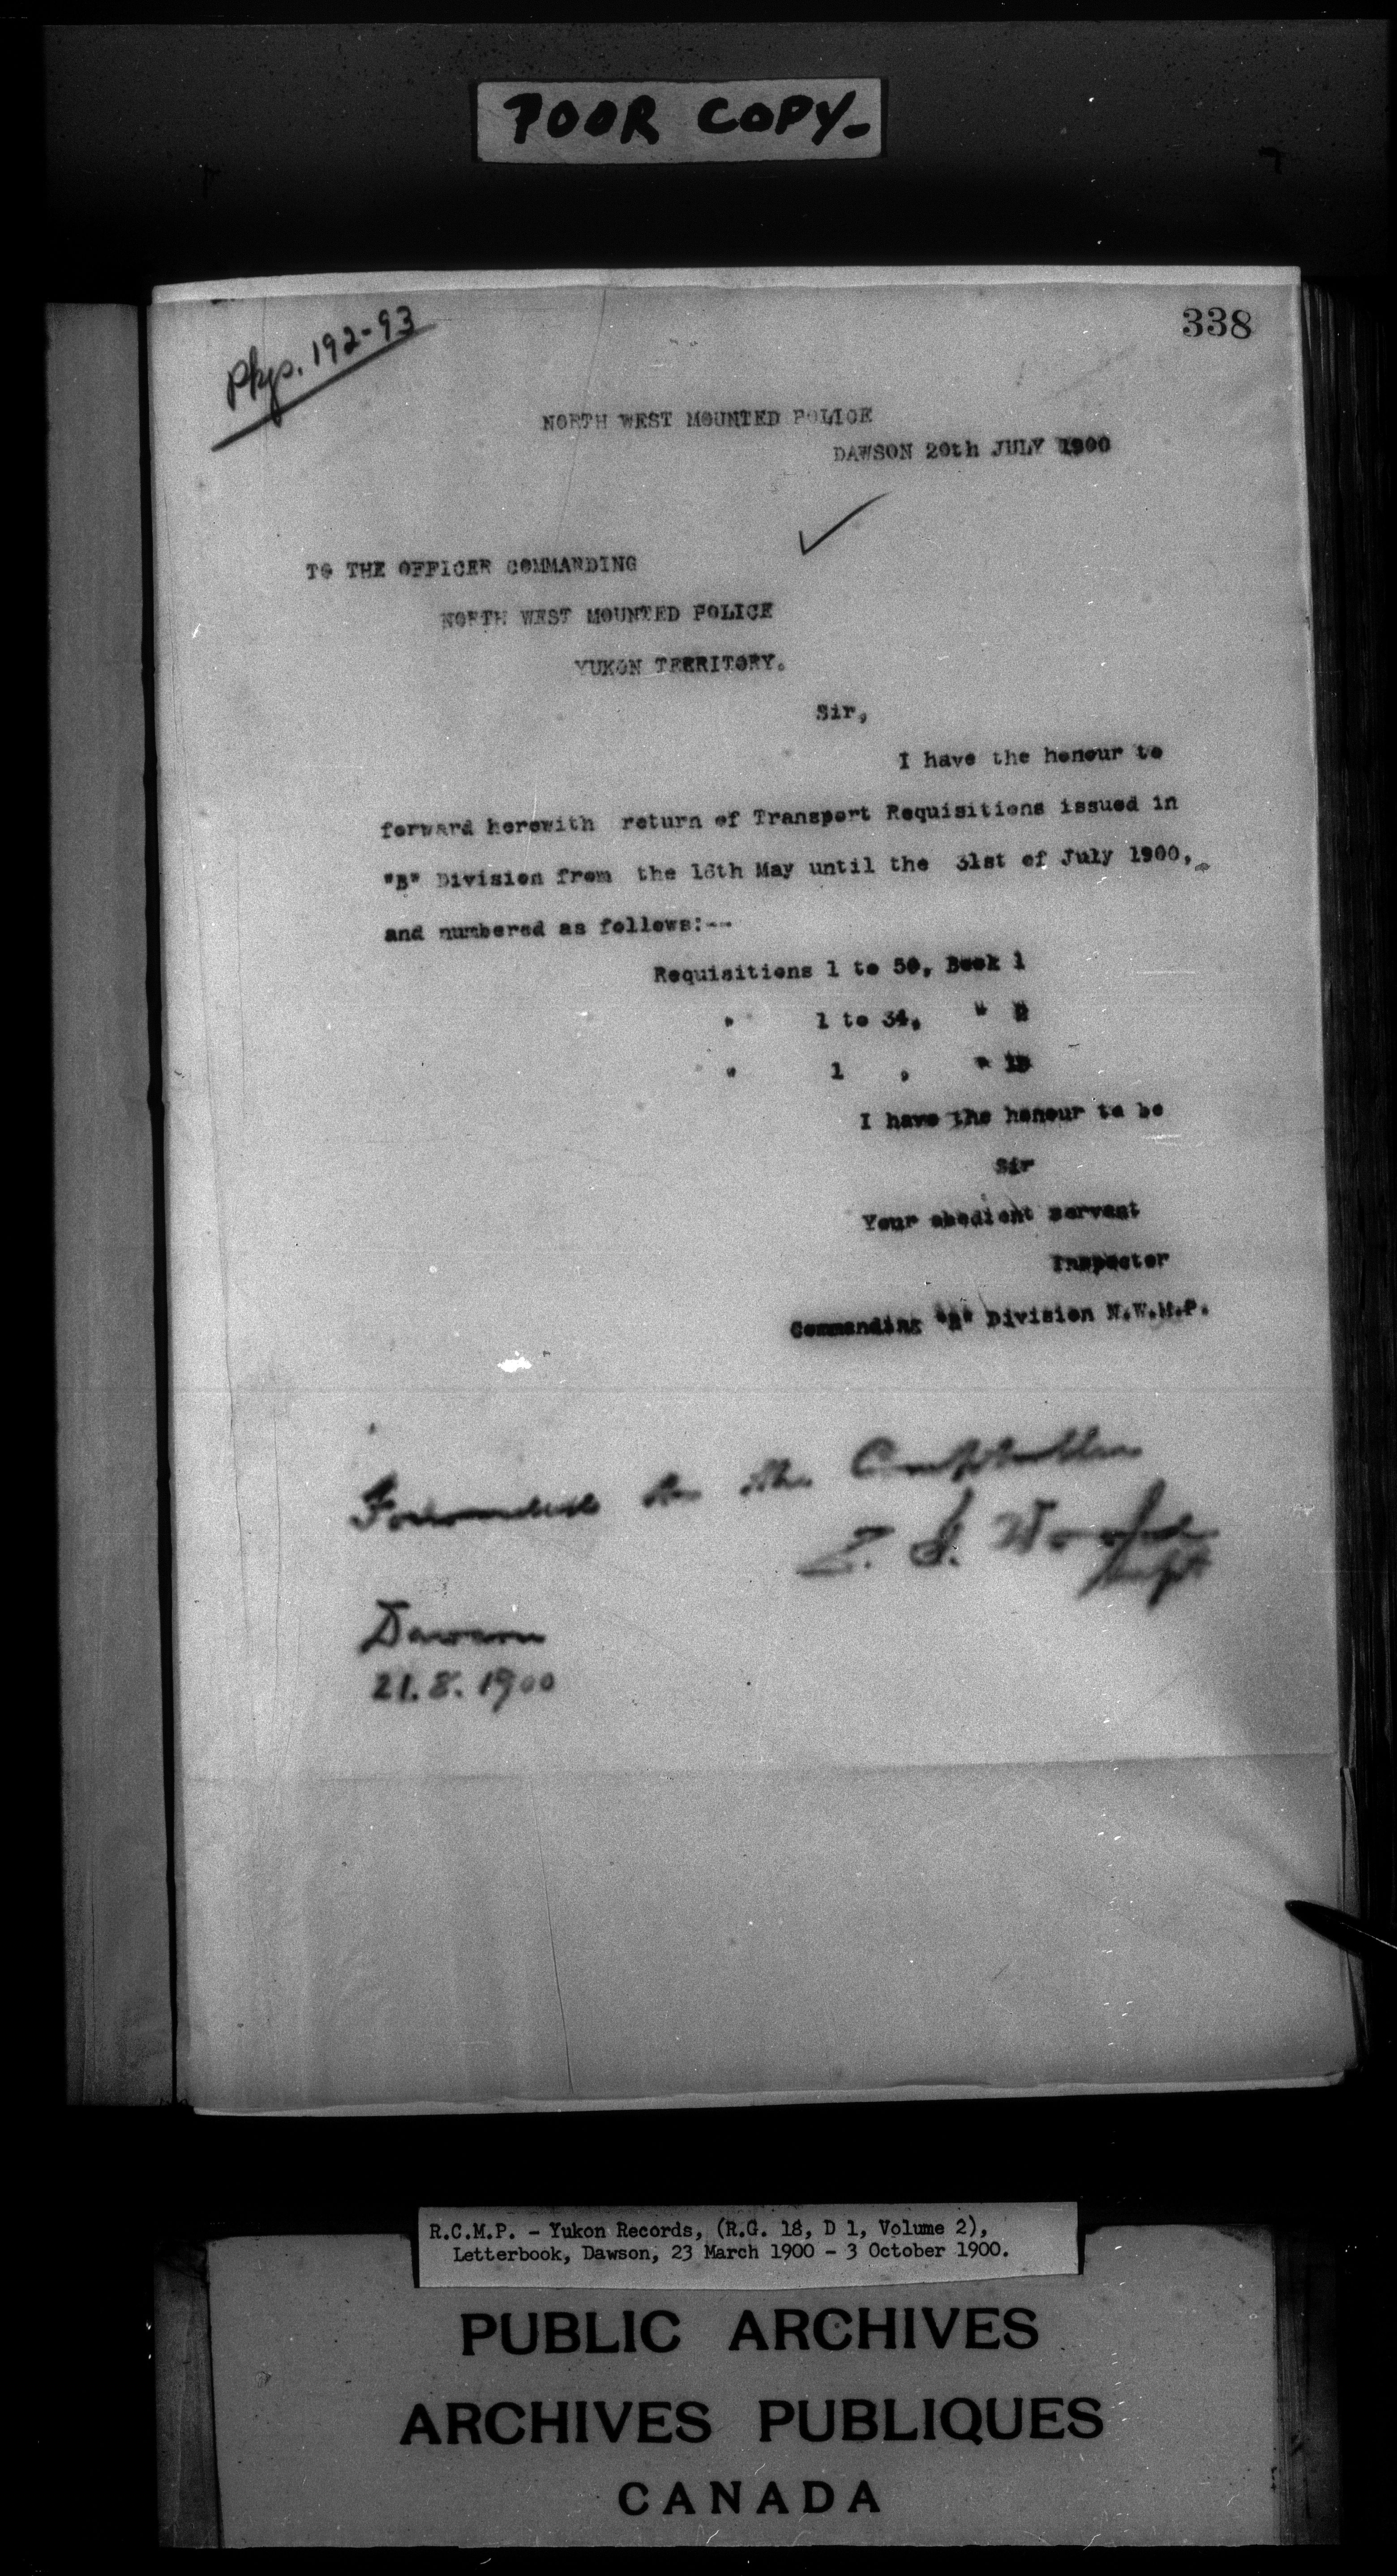 POOR COPY-
338
Pkgs. 192-93
NORTH WEST MOUNTED POLICE
DAWSON 20th JULY 1900
TO THE OFFICER COMMANDING
NORTH WEST MOUNTED POLICE
YUKON TERRITORY.
Sir,
I have the honour to
forward herewith return of Transport Requisitions issued in
"B" Division from the 16th May until the 31st of July 1900,
and numbered as follows:--
Requisitions 1 to 50, Book 1
" 1 to 34, "
" 1 , "
I have the honour to be
Sir
Your obedient servant
Inspector
Commanding "B" Division N.W.M.P.
Forwarded to the Comptroller
Z. T. Wood
Supt
Dawson
21.8.1900
R.C.M.P. - Yukon Records, (R.G. 18, D 1, Volume 2),
Letterbook, Dawson, 23 March 1900 - 3 October 1900.
PUBLIC ARCHIVES
ARCHIVES PUBLIQUES
CANADA